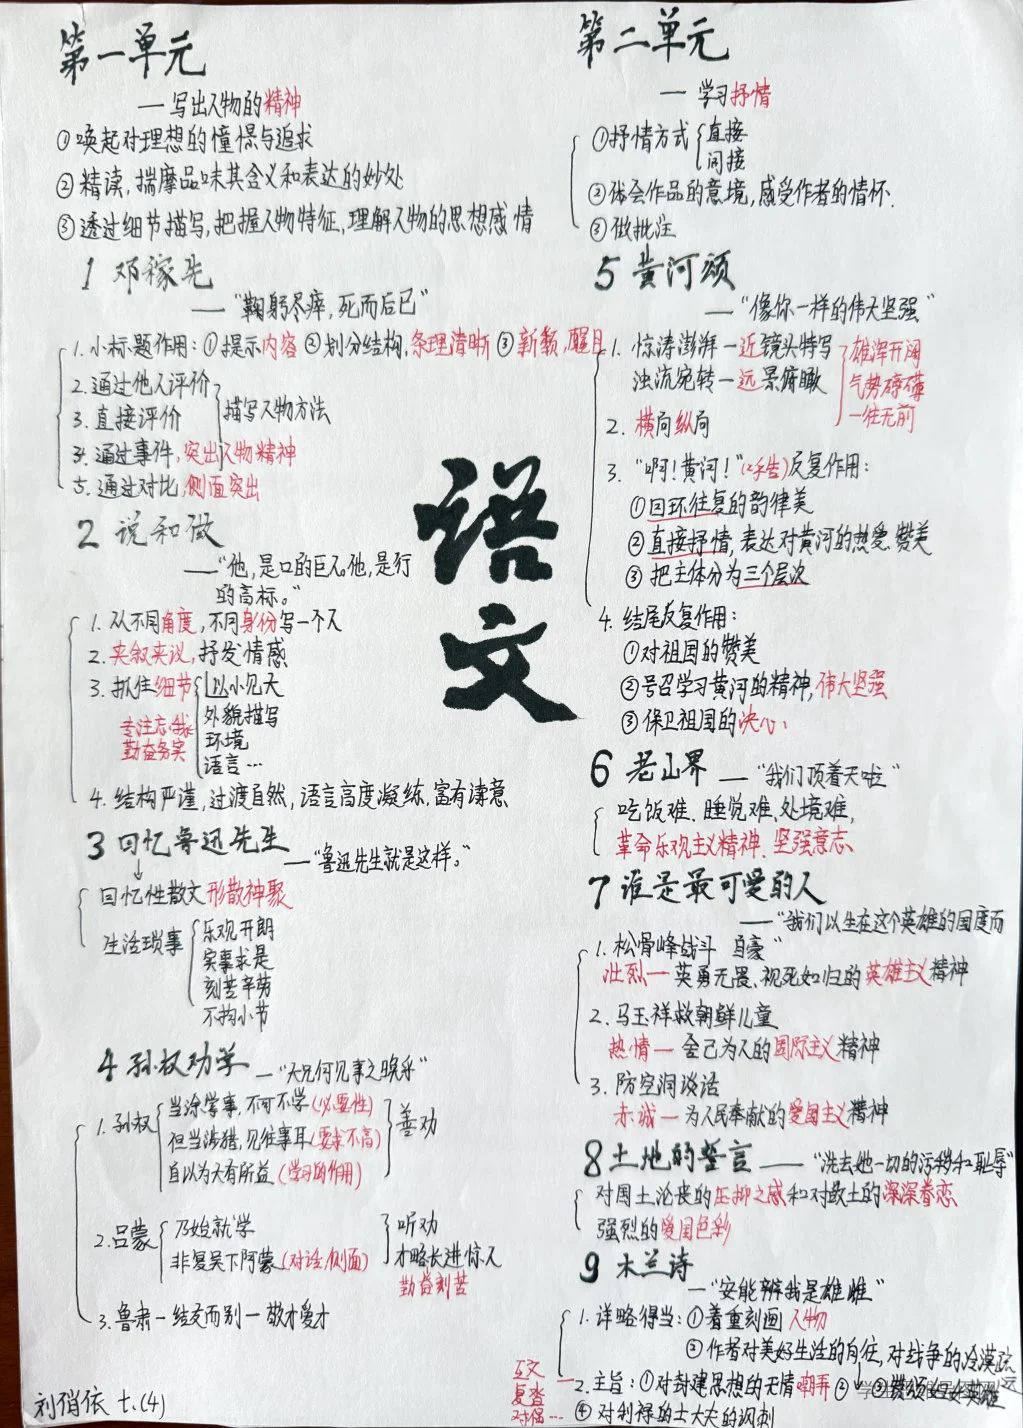 第一单元
—写出人物的精神
①唤起对理想的憧憬与追求
②精读,揣摩品味其含义和表达的妙处
③透过细节描写,把握人物特征,理解人物的思想感情
1 邓稼先
——"鞠躬尽瘁,死而后已"
1.小标题作用:①提示内容 ②划分结构,条理清晰 ③新颖,醒目
2.通过他人评价
3.直接评价
描写人物方法
4.通过事件,突出人物精神
5.通过对比,侧面突出
2 说和做
——"他,是口的巨人。他,是行
的高标。"
1.从不同角度,不同身份写一个人
2.夹叙夹议,抒发情感
3.抓住细节
以小见大
外貌描写
环境
语言…
专注忘我
勤奋务实
4.结构严谨,过渡自然,语言高度凝练,富有诗意
3 回忆鲁迅先生
——"鲁迅先生就是这样。"
↓
回忆性散文 形散神聚
生活琐事
乐观开朗
实事求是
刻苦辛劳
不拘小节
4 孙权劝学
—"大兄何见事之晚乎"
1.孙权
当涂掌事,不可不学(必要性)
但当涉猎,见往事耳(要求不高)
自以为大有所益(学习的作用)
善劝
2.吕蒙
乃始就学
非复吴下阿蒙(对话,侧面)
听劝
才略长进惊人
勤奋刻苦
3.鲁肃—结友而别—敬才爱才
刘俏依 七.(4)
语
文
第二单元
— 学习抒情
①抒情方式
直接
间接
②体会作品的意境,感受作者的情怀.
③做批注
5 黄河颂
——"像你一样的伟大坚强"
1. 惊涛澎湃—近镜头特写
浊流宛转—远景俯瞰
雄浑开阔
气势磅礴
一往无前
2. 横向纵向
3. "啊!黄河!"反复作用:
①回环往复的韵律美
②直接抒情,表达对黄河的热爱.赞美
③把主体分为三个层次
4. 结尾反复作用:
①对祖国的赞美
②号召学习黄河的精神,伟大坚强
③保卫祖国的决心、
6 老山界
——"我们顶着天啦"
吃饭难、睡觉难、处境难,
革命乐观主义精神、坚强意志
7 谁是最可爱的人
——"我们以生在这个英雄的国度而
自豪"
1.松骨峰战斗
壮烈—英勇无畏、视死如归的英雄主义精神
2.马玉祥救朝鲜儿童
热情—舍己为人的国际主义精神
3.防空洞谈话
赤诚—为人民奉献的爱国主义精神
8 土地的誓言
——"洗去她一切的污秽和耻辱"
对国土沦丧的压抑之感和对故土的深深眷恋
强烈的爱国色彩
9 木兰诗
—"安能辨我是雄雌"
1.详略得当:①着重刻画人物
②作者对美好生活的向往,对战争的冷漠疏远
互文
复沓
对偶…
2.主旨:①对封建思想的无情嘲弄 ②
④对利禄的士大夫的讽刺